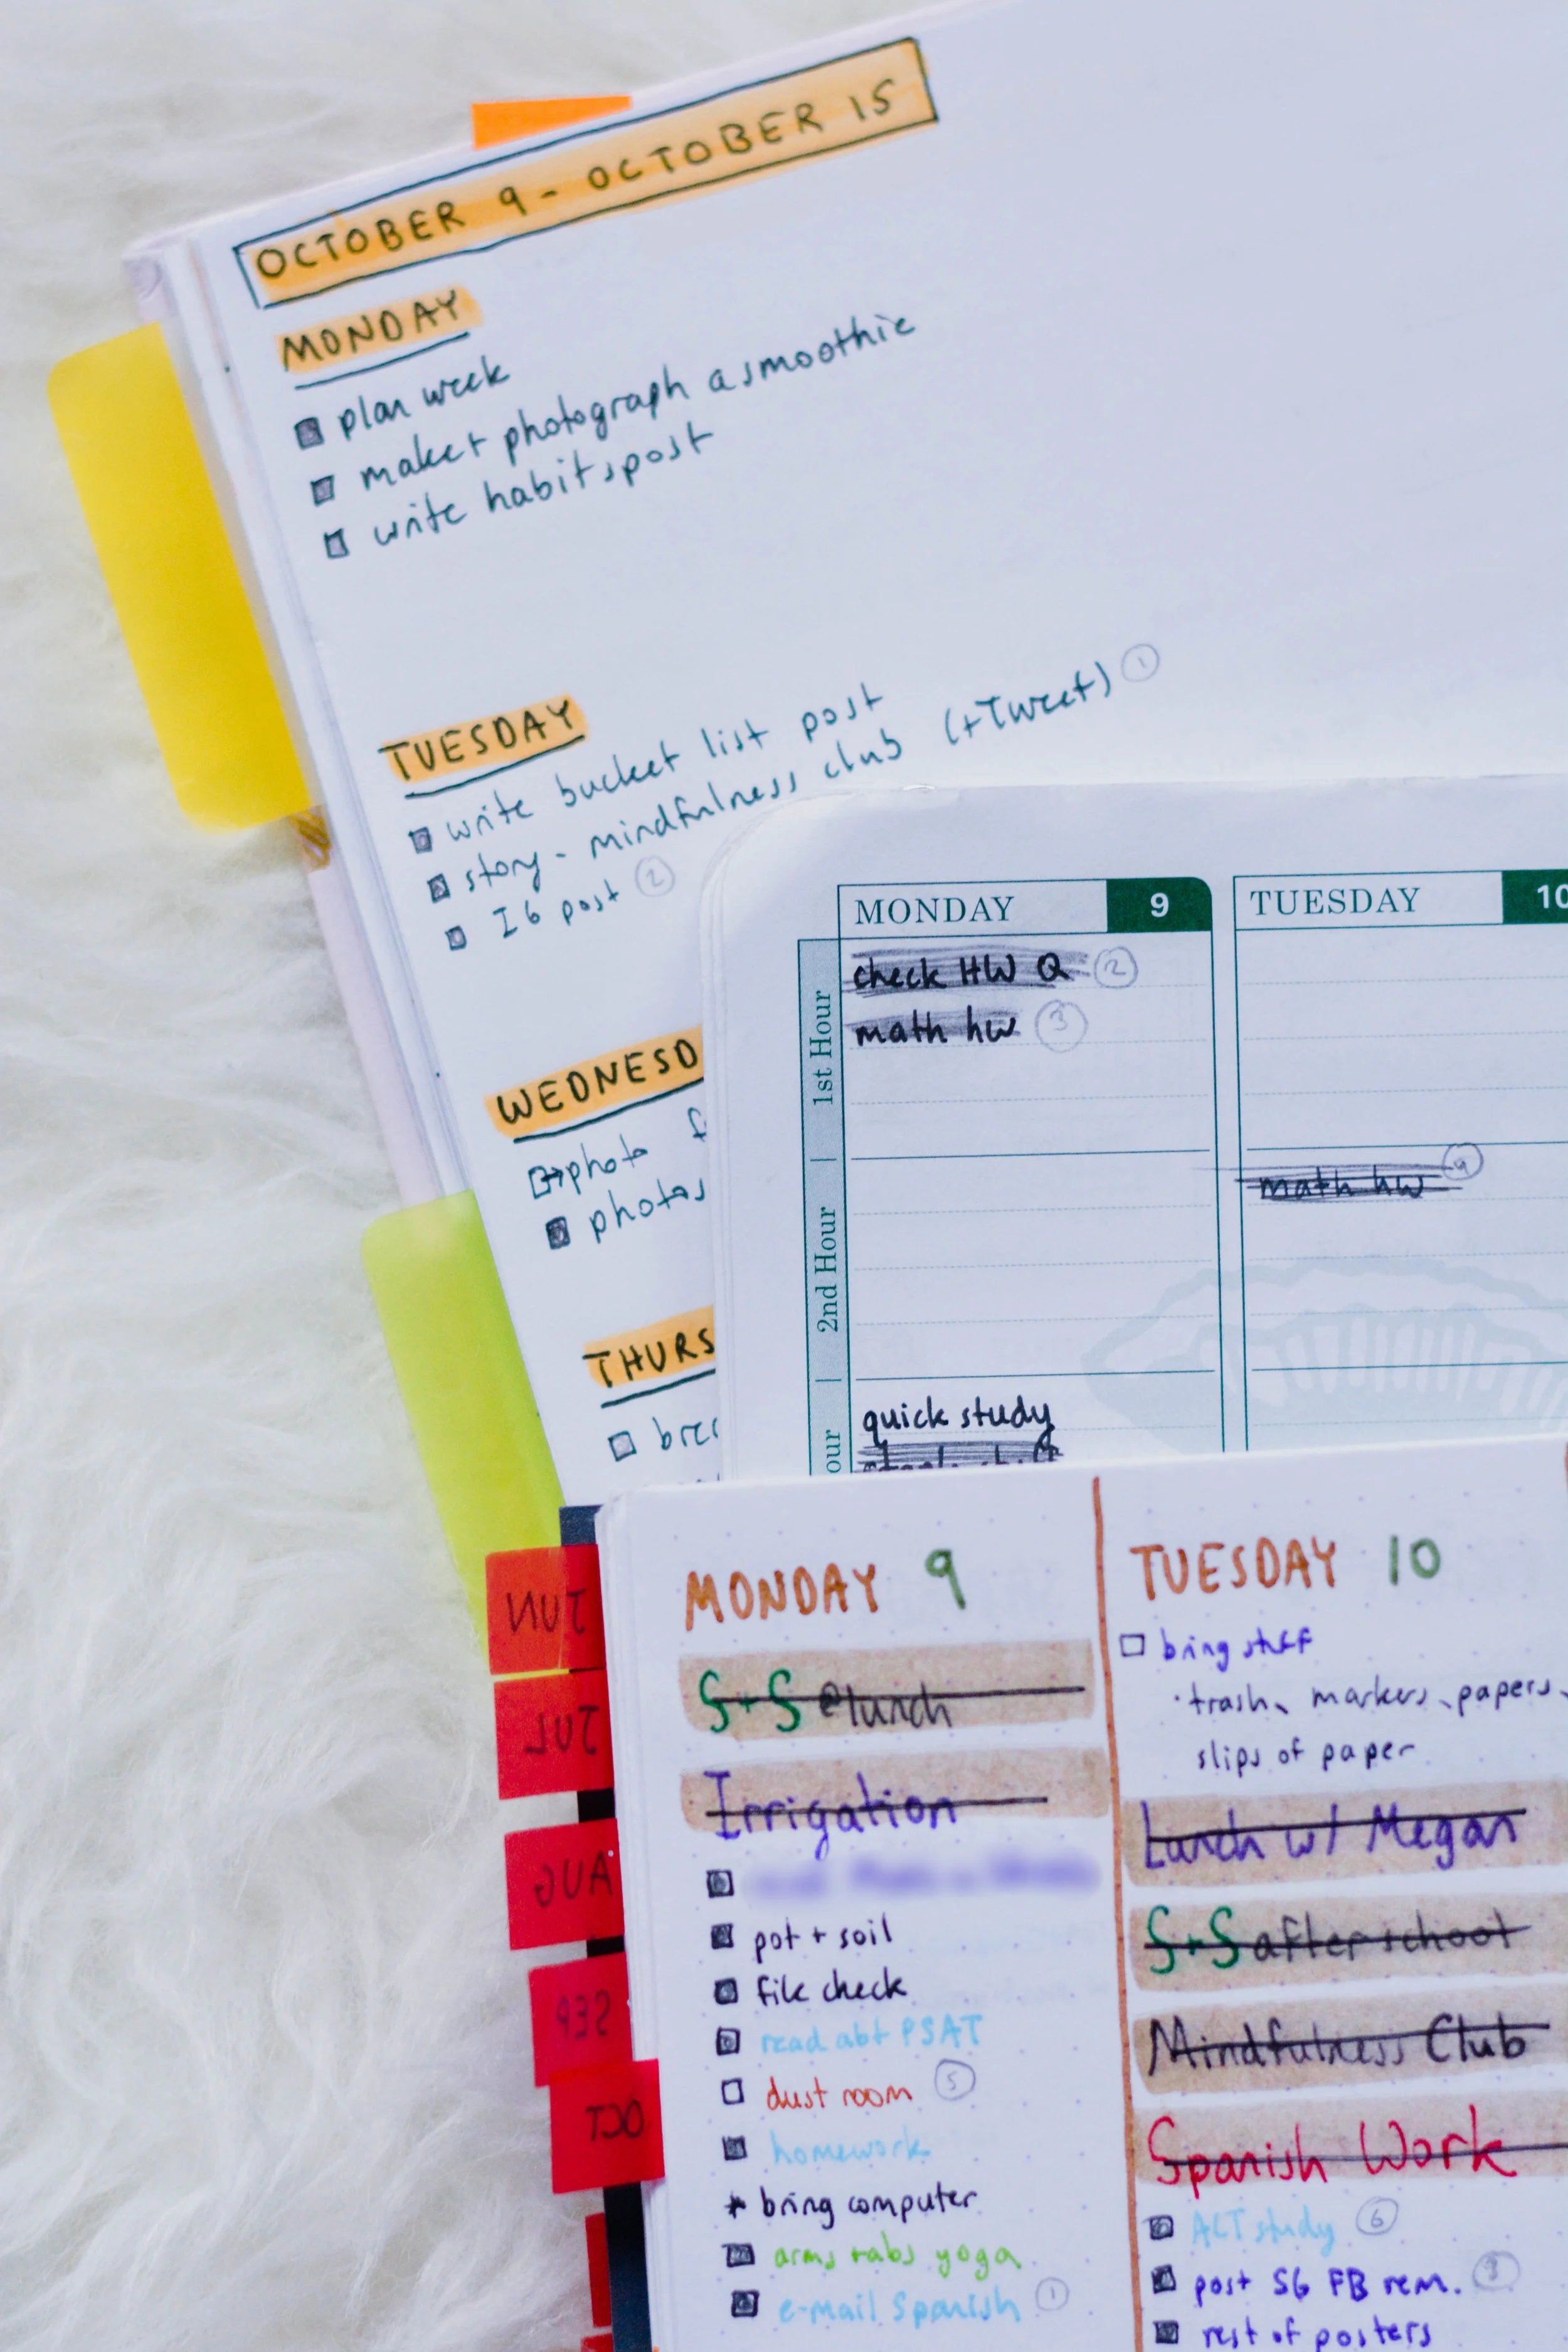 OCTOBER 9 - OCTOBER 15
MONDAY
plan week
make + photograph a smoothie
write habits post
TUESDAY
write bucket list post
story - mindfulness club (+Tweet) 1
IG post 2
WEDNESD
photo f
photos
THURS
MONDAY 9
1st Hour
check HW Q 2
math hw 3
2nd Hour
our
quick study
TUESDAY 10
math hw
JUN
JUL
AUG
SEP
OCT
MONDAY 9
S+S @lunch
Irrigation
pot + soil
file check
read abt PSAT
dust room 5
homework
* bring computer
arms + abs yoga
e-mail Spanish 1
TUESDAY 10
bring stuff
· trash, markers, papers,
slips of paper
Lunch w/ Megan
S+S after school
Mindfulness Club
Spanish Work
ACT study 6
post SG FB rem.
rest of posters